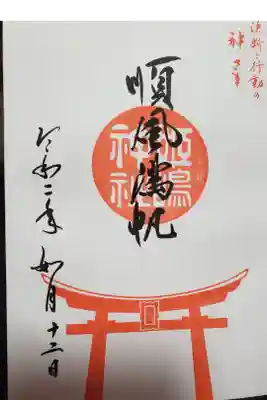 決断と行動の
神さま
順風満帆
神社
令和二年 如月 十二日